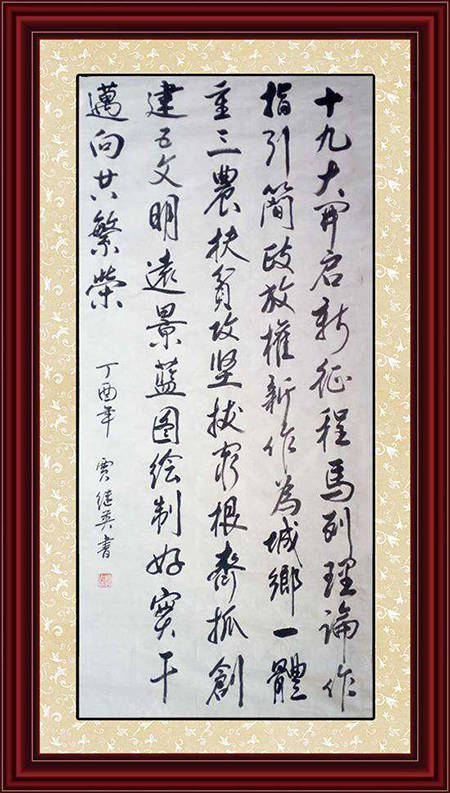 十九大開启新征程馬列理論作
指引簡政放權新作為城鄉一體
重三農扶貧攻坚拔窮根齊抓創
建五文明遠景藍图绘制好實干
邁向共繁榮
丁酉年 賈继英書